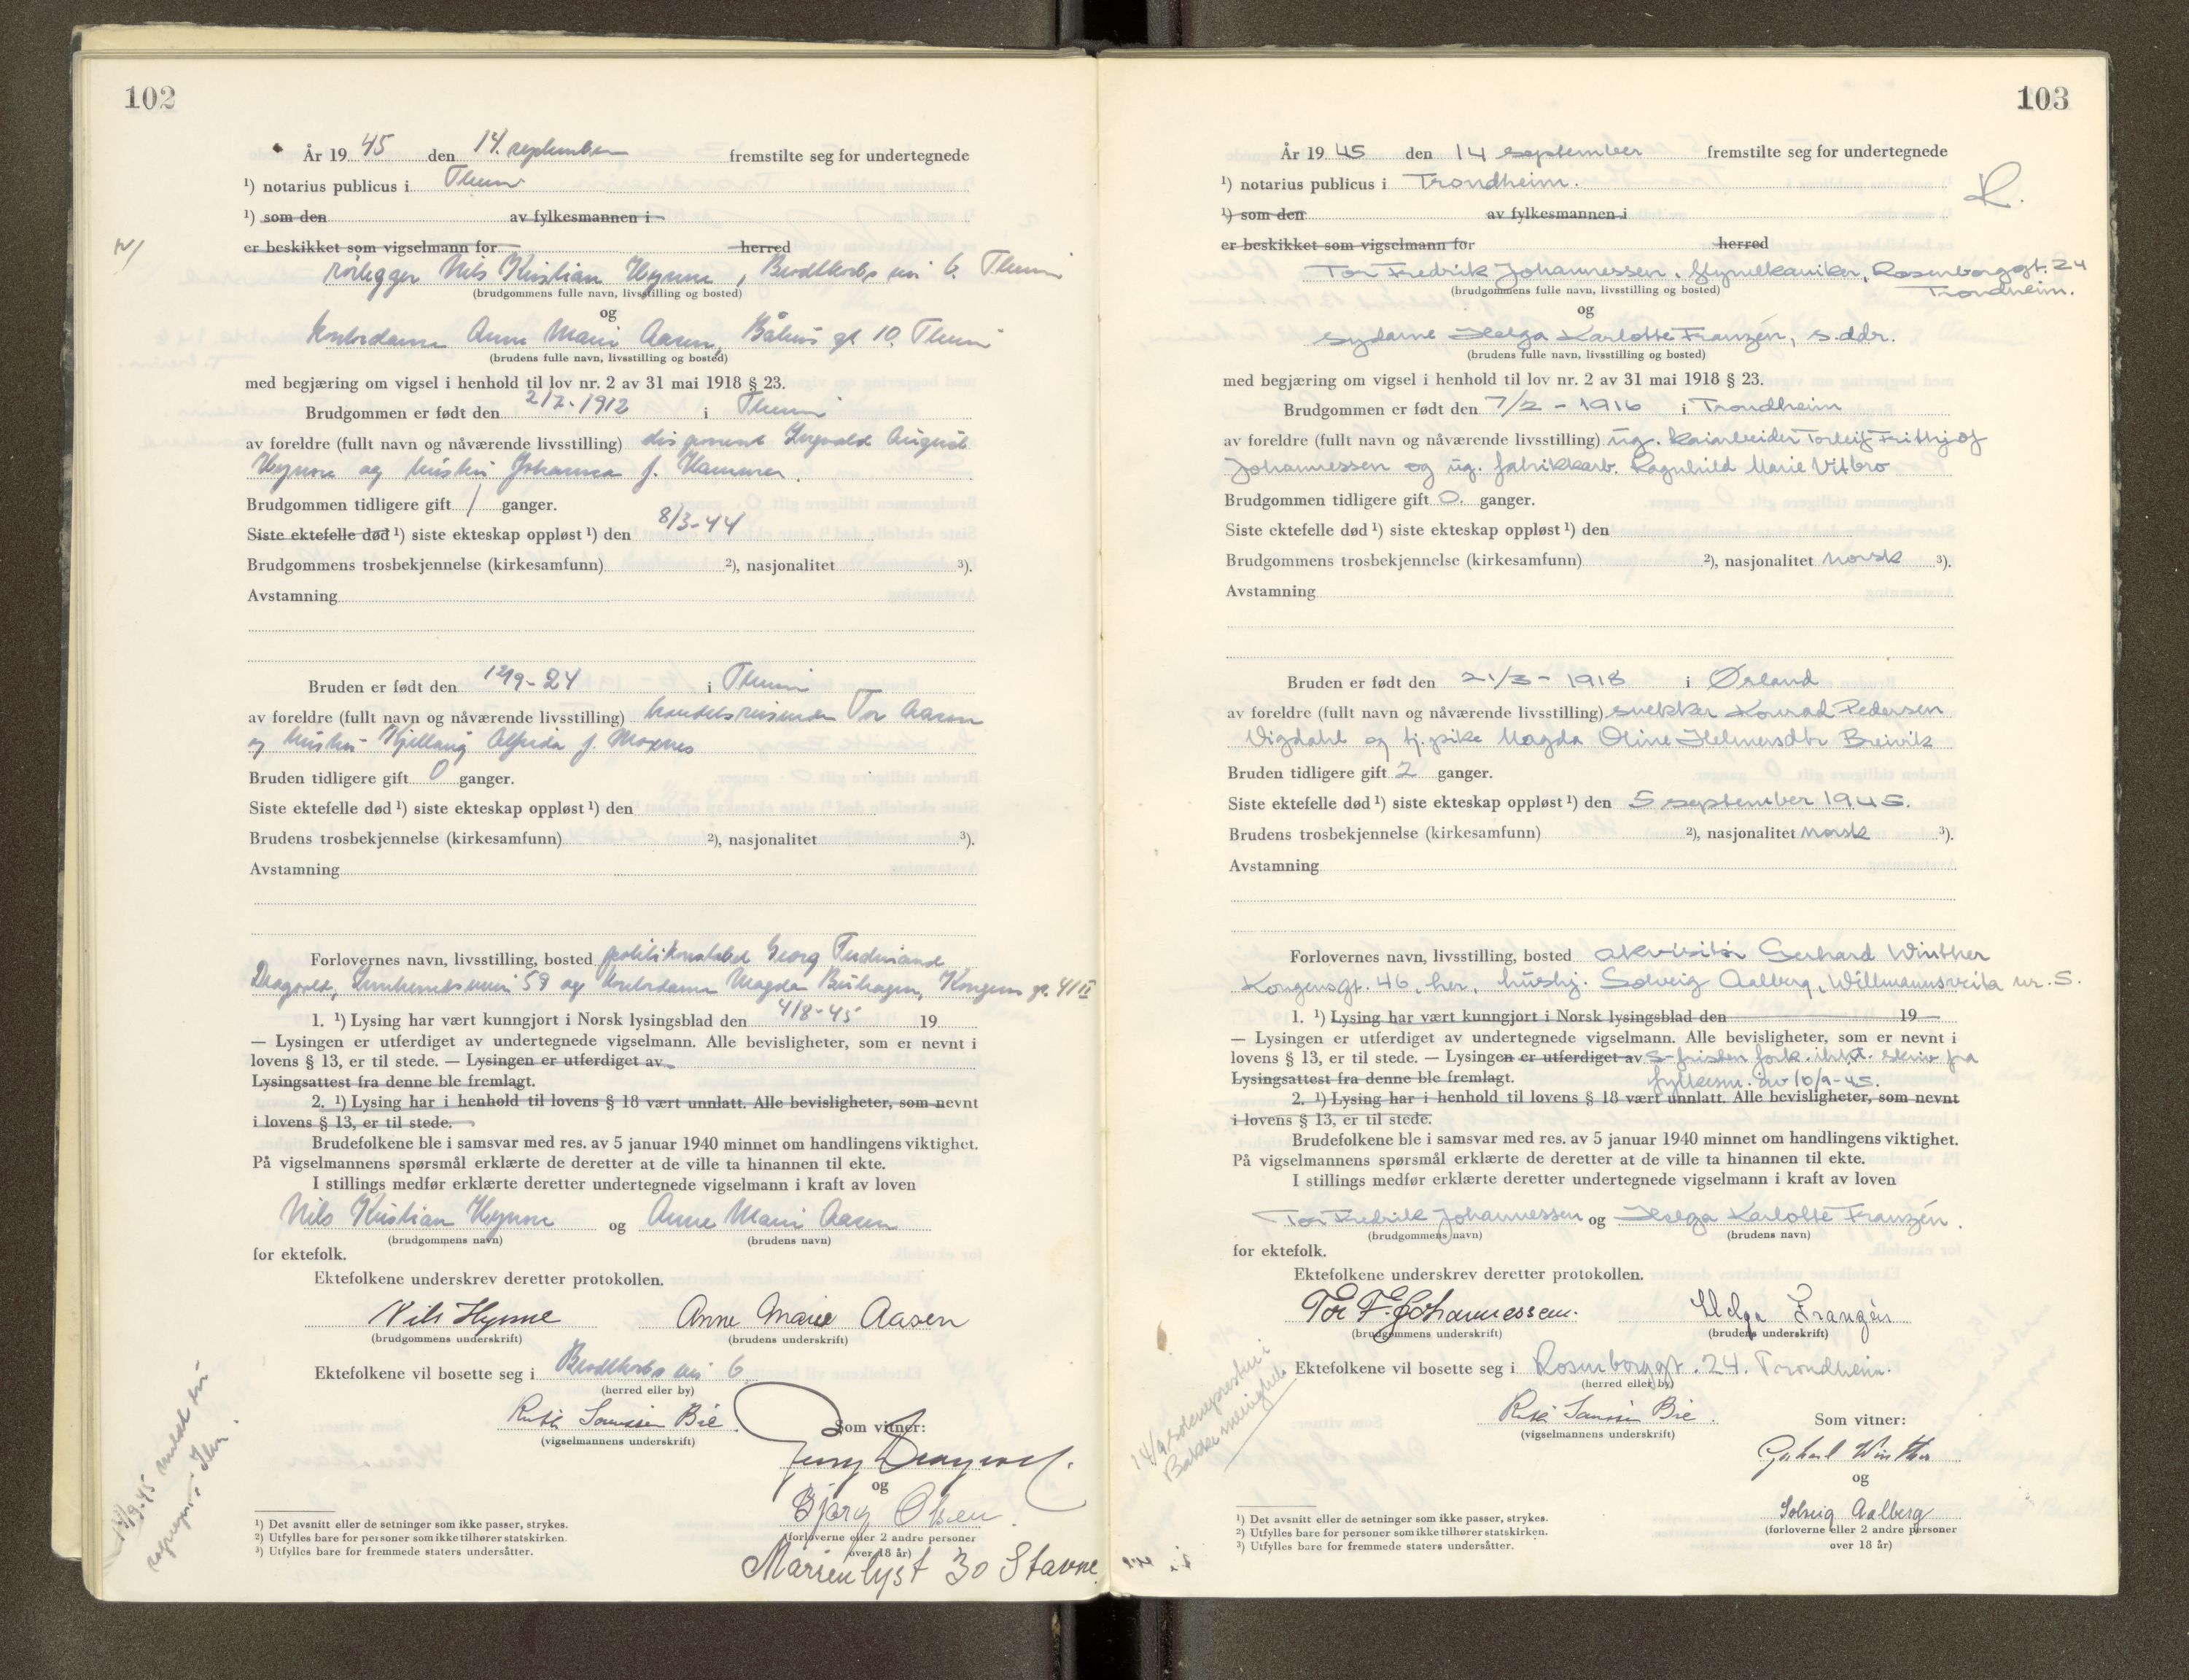 102
År 19 45 den 14. september fremstilte seg for undertegnede
¹) notarius publicus i Theim
¹) som den av fylkesmannen i
er beskikket som vigselmann for herred
rørlegger Nils Kristian Hynne, Brodtkorbs vei 6. Theim
(brudgommens fulle navn, livsstilling og bosted)
og
kontordame Anne Marie Aasen, Båhus gt 10. Theim
(brudens fulle navn, livsstilling og bosted)
med begjæring om vigsel i henhold til lov nr. 2 av 31 mai 1918 § 23.
Brudgommen er født den 2/2-1912 i Theim
av foreldre (fullt navn og nåværende livsstilling) disponent Ingvald August
Hynne og hustru Johanna f. Hammer.
Brudgommen tidligere gift 1 ganger.
Siste ektefelle død ¹) siste ekteskap oppløst ¹) den 8/3-44
Brudgommens trosbekjennelse (kirkesamfunn) ²), nasjonalitet ³).
Avstamning
Bruden er født den 12/9-24 i Theim
av foreldre (fullt navn og nåværende livsstilling) handelsreisende Tor Aasen
og hustru Kjellaug Alfrida f. Moxnes
Bruden tidligere gift 0 ganger.
Siste ektefelle død ¹) siste ekteskap oppløst ¹) den
Brudens trosbekjennelse (kirkesamfunn) ²), nasjonalitet ³).
Avstamning
Forlovernes navn, livsstilling, bosted politikonstabel Georg Ferdinand
Dragvold, 59 og kontordame Magda Buhagen, Kongens gt. 41 II
1. ¹) Lysing har vært kunngjort i Norsk lysingsblad den 4/8-45 19
— Lysingen er utferdiget av undertegnede vigselmann. Alle bevisligheter, som er nevnt i
lovens § 13, er til stede. — Lysingen er utferdiget av
Lysingsattest fra denne ble fremlagt.
2. ¹) Lysing har i henhold til lovens § 18 vært unnlatt. Alle bevisligheter, som nevnt
i lovens § 13, er til stede.
Brudefolkene ble i samsvar med res. av 5 januar 1940 minnet om handlingens viktighet.
På vigselmannens spørsmål erklærte de deretter at de ville ta hinannen til ekte.
I stillings medfør erklærte deretter undertegnede vigselmann i kraft av loven
Nils Kristian Hynne og Anne Marie Aasen
(brudgommens navn) (brudens navn)
for ektefolk.
Ektefolkene underskrev deretter protokollen.
Nils Hynne Anne Marie Aasen
(brudgommens underskrift) (brudens underskrift)
Ektefolkene vil bosette seg i Brodtkorbs vei 6
(herred eller by)
Som vitner:
(vigselmannens underskrift)
og
Bjørg Olsen
(forloverne eller 2 andre personer
over 18 år)
Marienlyst 30 Stavne.
¹) Det avsnitt eller de setninger som ikke passer, strykes.
²) Utfylles bare for personer som ikke tilhører statskirken.
³) Utfylles bare for fremmede staters undersåtter.
103
År 19 45 den 14 september fremstilte seg for undertegnede
¹) notarius publicus i Trondheim.
R.
¹) som den av fylkesmannen i
er beskikket som vigselmann for herred
Tor Fredrik Johannessen, flymekaniker, Rosenborggt. 24
Trondheim.
(brudgommens fulle navn, livsstilling og bosted)
og
sydame Helga Karlotte Franzén, s.ddr.
(brudens fulle navn, livsstilling og bosted)
med begjæring om vigsel i henhold til lov nr. 2 av 31 mai 1918 § 23.
Brudgommen er født den 7/2 - 1916 i Trondheim
av foreldre (fullt navn og nåværende livsstilling) ug. kaiarbeider Torleif Frithjof
Johannessen og ug. fabrikkarb. Ragnhild Marie Vitbro
Brudgommen tidligere gift 0. ganger.
Siste ektefelle død ¹) siste ekteskap oppløst ¹) den
Brudgommens trosbekjennelse (kirkesamfunn) ²), nasjonalitet norsk ³).
Avstamning
Bruden er født den 21/3 - 1918 i Ørland
av foreldre (fullt navn og nåværende livsstilling) snekker Konrad Pedersen
Vigdahl og tj.pike Magda Oline Helmersdtr Breivik
Bruden tidligere gift 2 ganger.
Siste ektefelle død ¹) siste ekteskap oppløst ¹) den 5 september 1945.
Brudens trosbekjennelse (kirkesamfunn) ²), nasjonalitet norsk ³).
Avstamning
Forlovernes navn, livsstilling, bosted akvisitør Gerhard Winther
Kongensgt. 46, her, hushj. Solveig Aalberg, Willmannsveita nr. 5.
1. ¹) Lysing har vært kunngjort i Norsk lysingsblad den 19
— Lysingen er utferdiget av undertegnede vigselmann. Alle bevisligheter, som er nevnt i
lovens § 13, er til stede. — Lysingen er utferdiget av s-fristen fork. skriv fra
Lysingsattest fra denne ble fremlagt. fylkesm. av 10/9-45.
2. ¹) Lysing har i henhold til lovens § 18 vært unnlatt. Alle bevisligheter, som nevnt
i lovens § 13, er til stede.
Brudefolkene ble i samsvar med res. av 5 januar 1940 minnet om handlingens viktighet.
På vigselmannens spørsmål erklærte de deretter at de ville ta hinannen til ekte.
I stillings medfør erklærte deretter undertegnede vigselmann i kraft av loven
Tor Fredrik Johannessen og Helga Karlotte Franzén.
(brudgommens navn) (brudens navn)
for ektefolk.
Ektefolkene underskrev deretter protokollen.
Tor F. Johannessen. Helga Franzén
(brudgommens underskrift) (brudens underskrift)
Ektefolkene vil bosette seg i Rosenborggt. 24. Trondheim.
(herred eller by)
Som vitner:
(vigselmannens underskrift)
Gerhard Winther
og
Solveig Aalberg
(forloverne eller 2 andre personer
over 18 år)
¹) Det avsnitt eller de setninger som ikke passer, strykes.
²) Utfylles bare for personer som ikke tilhører statskirken.
³) Utfylles bare for fremmede staters undersåtter.
14/9 soknepresten i
Bakke menighet